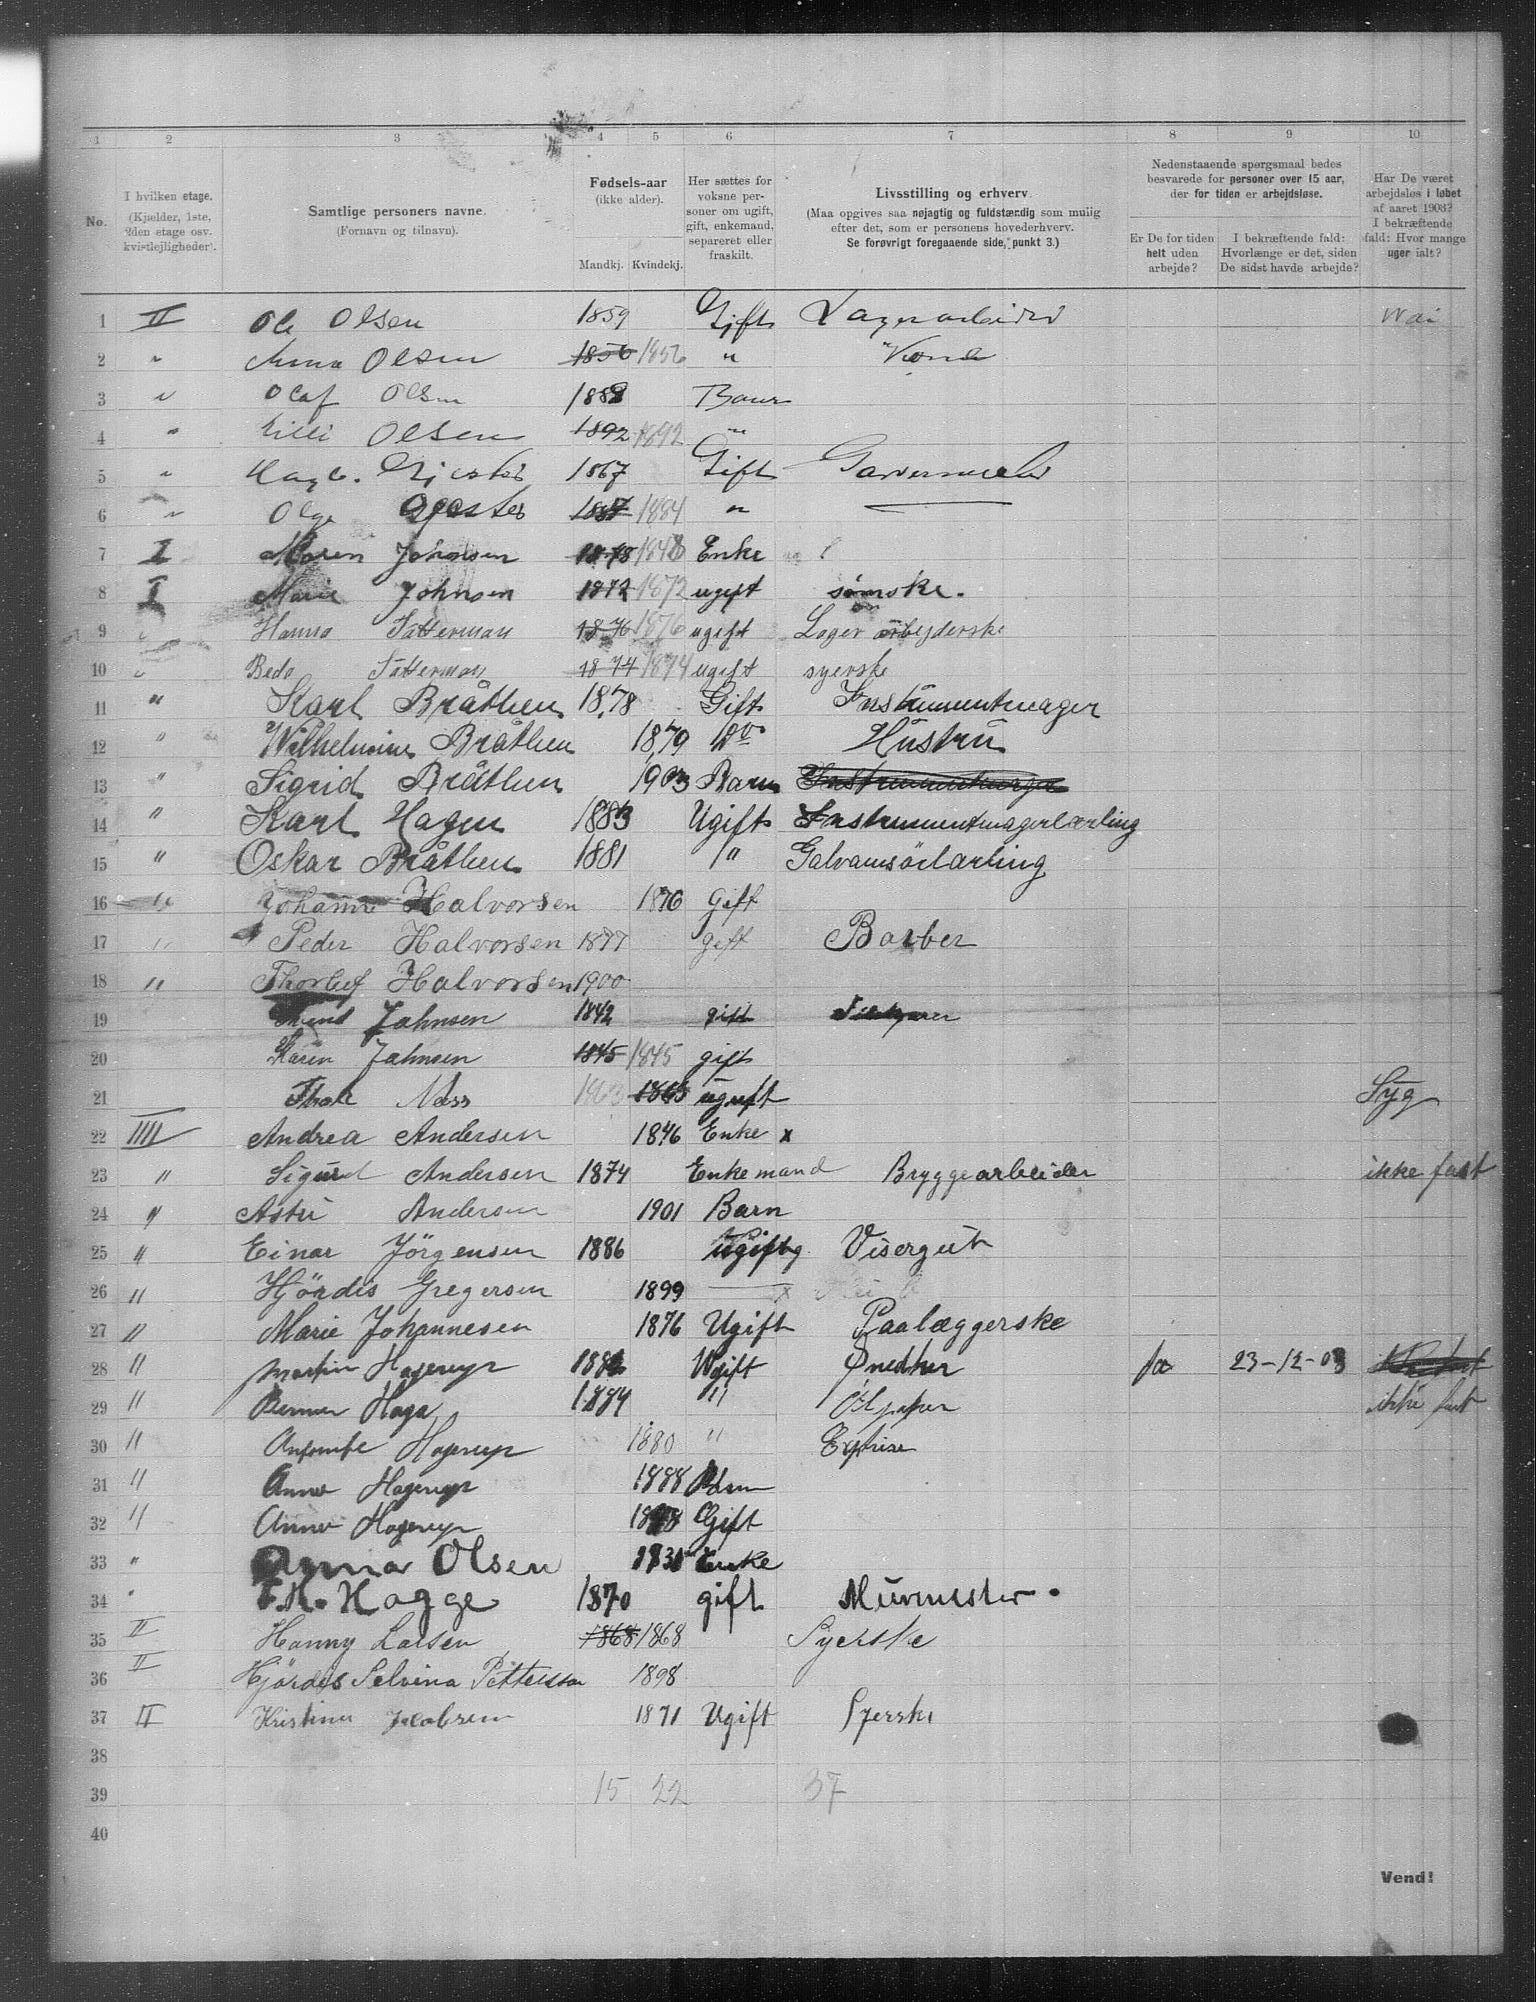 1 2 3 4 5 6 7 8 9 10
No.
I hvilken etage.
(Kjælder, 1ste, 2den etage osv. kvistlejligheder).
Samtlige personers navne.
(Fornavn og tilnavn).
Fødsels-aar
(ikke alder).
Mandkj. Kvindekj.
Her sættes for voksne personer om ugift, gift, enkemand, separeret eller fraskilt.
Livsstilling og erhverv.
(Maa opgives saa nøjagtig og fuldstændig som mulig efter det, som er personens hovederhverv.
Se forøvrigt foregaaende side, punkt 3.)
Nedenstaaende spørgsmaal bedes besvarede for personer over 15 aar, der for tiden er arbejdsløse.
Er De for tiden helt uden arbejde?
I bekræftende fald: Hvorlænge er det, siden De sidst havde arbejde?
Har De været arbejdsløs i løbet af aaret 1903? I bekræftende fald: Hvor mange uger ialt?
1 II Ole Olsen 1859 Gift Lagerarbeider
2 " Anna Olsen 1856 1856 " Kone
3 " Olaf Olsen 188 Barn
4 " Lilli Olsen 1892 1892 "
5 " 1867 Gift
6 " Olga 1884 "
7 I Maren Johnsen 1848 Enke
8 I Marie Johnsen 1872 1872 ugift
9 " Hanna Satterman 1876 1876 ugift Lager arbejderske
10 " Beda Satterman 1874 1874 ugift syerske
11 " Karl Bråthen 1878 Gift Instrumentmager
12 " Wilhelmine Bråthen 1879 Do Hustru
13 " Sigrid Bråthen 1903 Barn Instrumentmager
14 " Karl Hagen 1883 Ugift Instrumentmagerlærling
15 " Oskar Bråthen 1881 " Galvanisörlærling
16 " Johanne Halvorsen 1876 Gift
17 " Peder Halvorsen 1877 gift Barber
18 " Thorleif Halvorsen 1900
19 Johnsen 1842 gift
20 Karen Johnsen 1845 1845 gift
21 Næss 1863 ugift Syg
22 IIII Andrea Andersen 1846 Enke x
23 " Sigurd Andersen 1874 Enkemand Bryggearbeider ikke fast
24 " Astri Andersen 1901 Barn
25 " Einar Jörgensen 1886 ugift Visergut
26 " Hjördis Gregersen 1899 x
27 " Marie Johannesen 1876 Ugift Paalæggerske
28 " Martin Hagerup 188 Ugift Snedker Ja 23-12-03
29 " Haga 1884 " ikke fast
30 " Hagerup 1880 "
31 " Anna Hagerup 1888
32 " Anna Hagerup Gift
33 " Anna Olsen Enke
34 " Hagge 1870 gift Murmester
35 II Hanny Larsen 1868 1868 Syerske
36 II Hjördis Selvina Pettersson 1898
37 II Kristine Jacobsen 1871 Ugift Syerske
38
39 15 22 37
40
Vend!